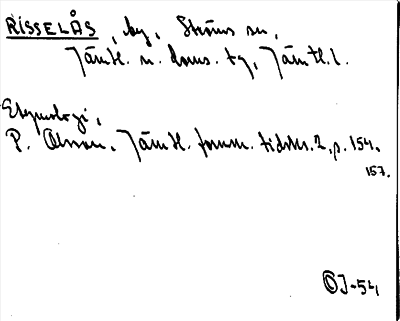 RISSELÅS, by, Ströms sn,
Jämtl. n. doms. tg, Jämtl. l.
Etymologi,
P. Olsson. Jämtl. fornm. tidskr. 2, p. 154.
157.
OJ-54